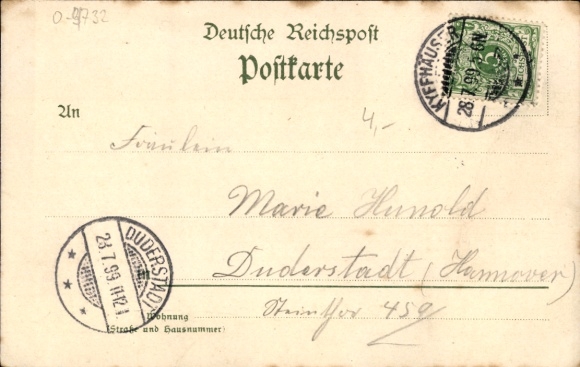 0-9732
Deutsche Reichspost
Postkarte
KYFFHÄUSER
28 7.99
5
An
4,-
Fräulein
Marie Hunold
Duderstadt (Hannover)
Steinthor 459
DUDERSTADT
28.7.99. 11-12
Wohnung
(Straße und Hausnummer)